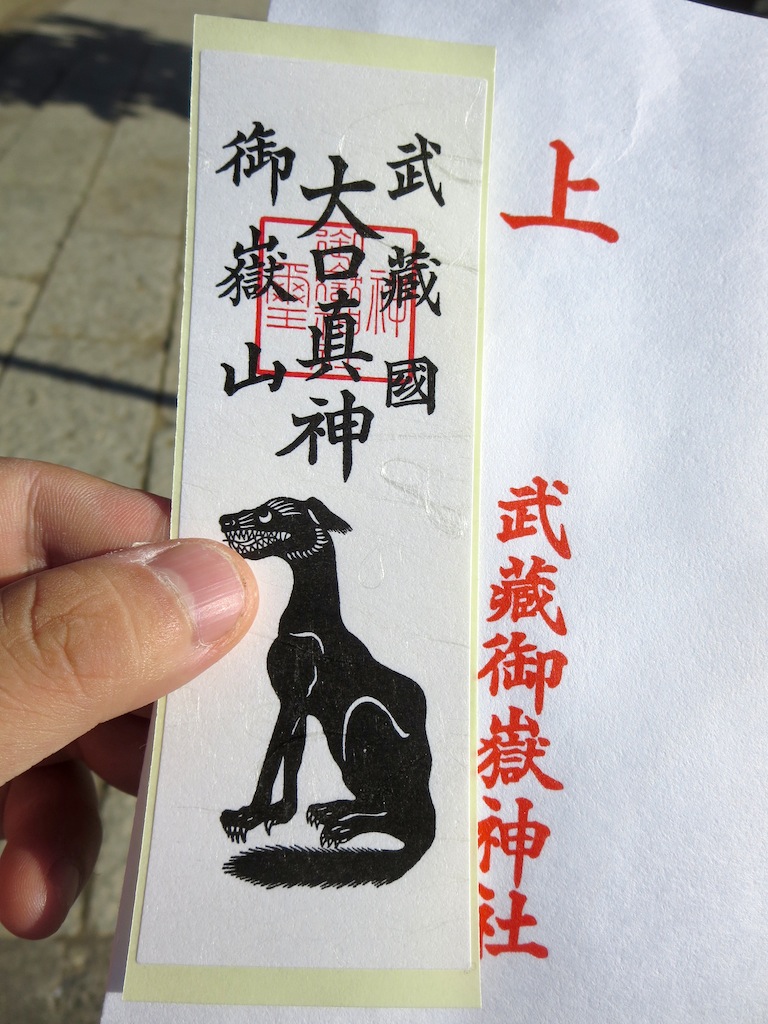 武藏國
大口真神
御嶽山
上
武藏御嶽神社